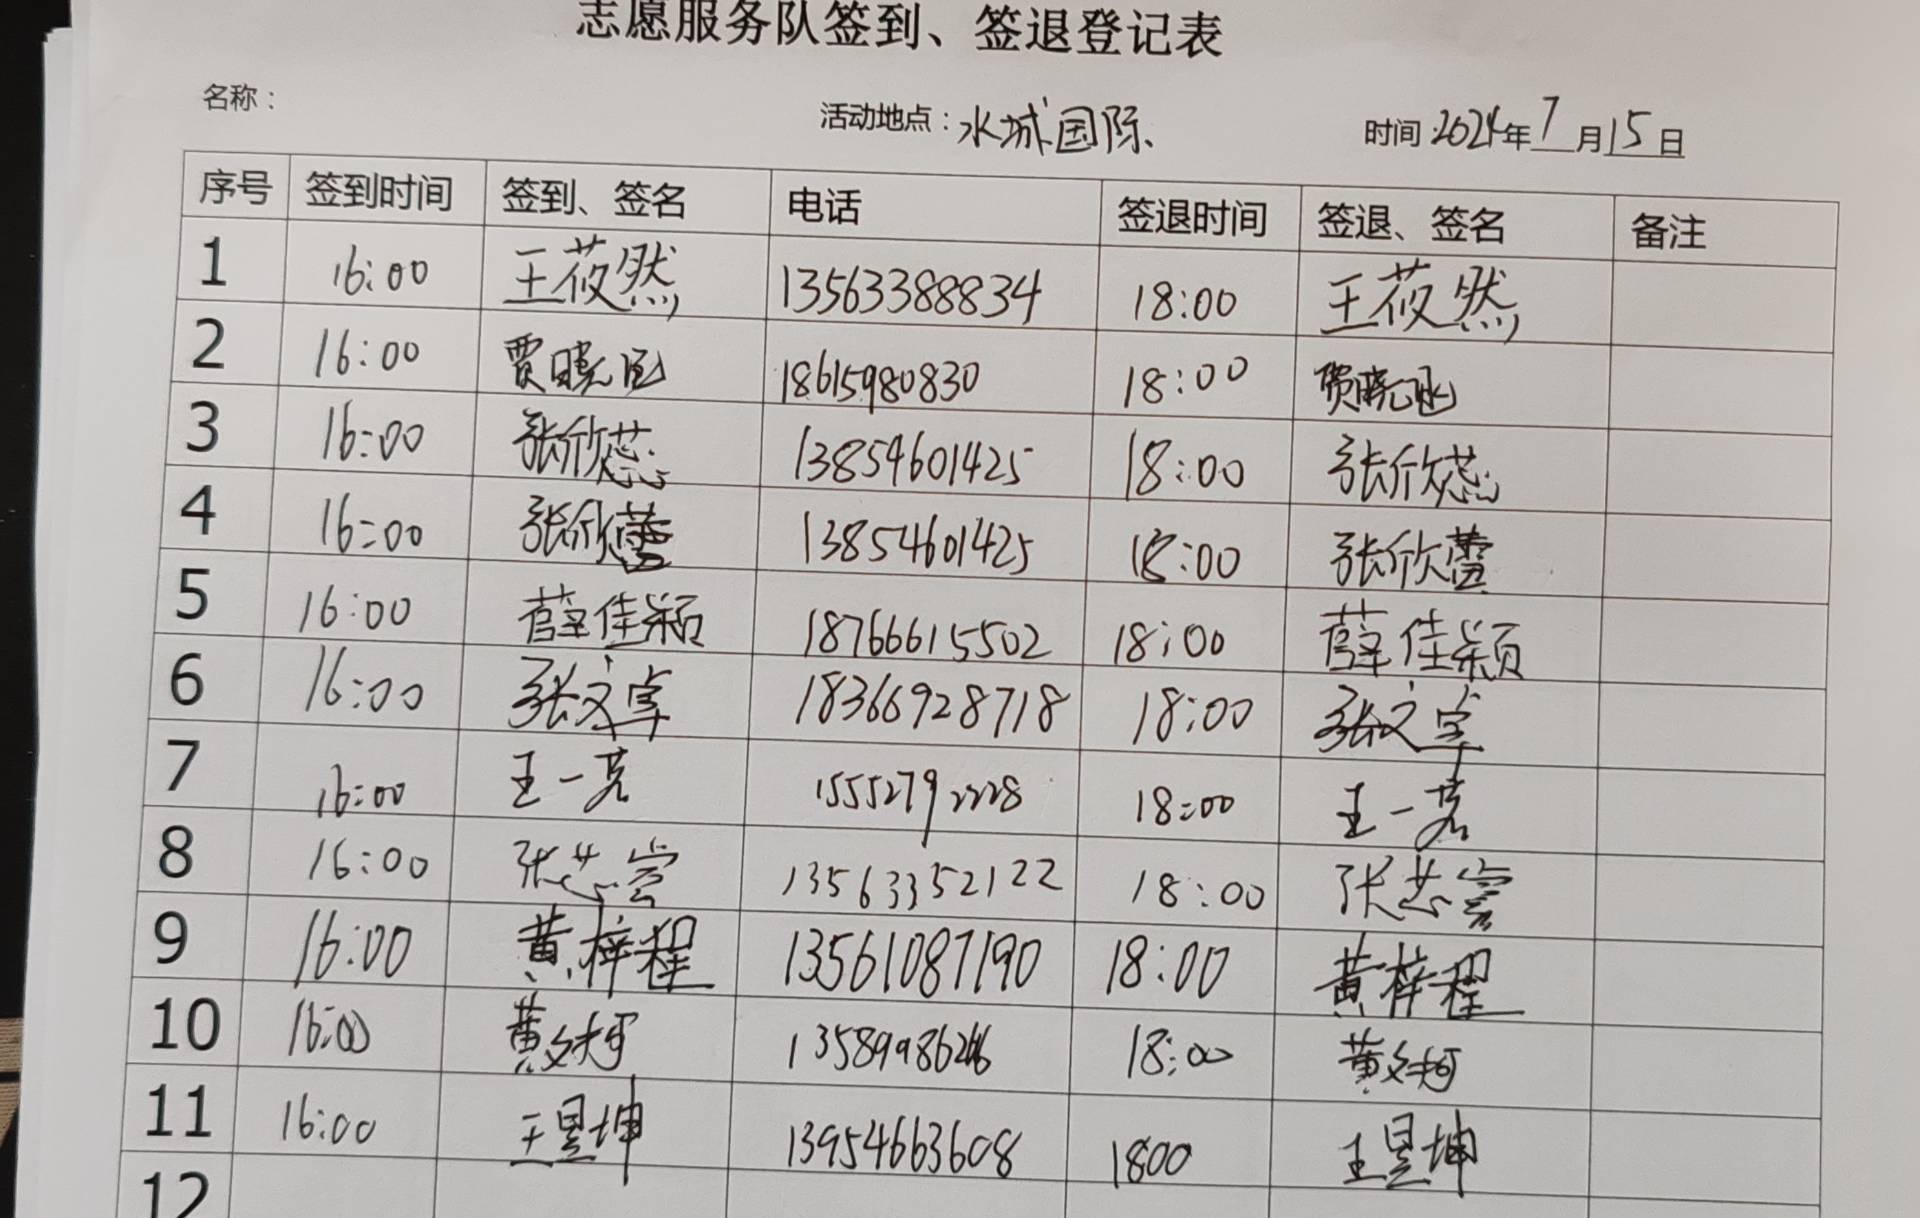 志愿服务队签到、签退登记表
名称： 活动地点：水城国际 时间：2024年7月15日
序号 签到时间 签到、签名 电话 签退时间 签退、签名 备注
1 16:00 王莜然 13563388834 18:00 王莜然
2 16:00 贾晓 18615980830 18:00 贾晓
3 16:00 张欣蕊 13854601425 18:00 张欣蕊
4 16:00 张欣蕾 13854601425 18:00 张欣蕾
5 16:00 薛佳颖 18766615502 18:00 薛佳颖
6 16:00 张文卓 18366928718 18:00 张文卓
7 16:00 王一茗 15552792228 18:00 王一茗
8 16:00 张芯 13563352122 18:00 张芯
9 16:00 黄梓程 13561087190 18:00 黄梓程
10 16:00 黄文 18:00 黄文
11 16:00 王昱坤 13954663608 1800 王昱坤
12